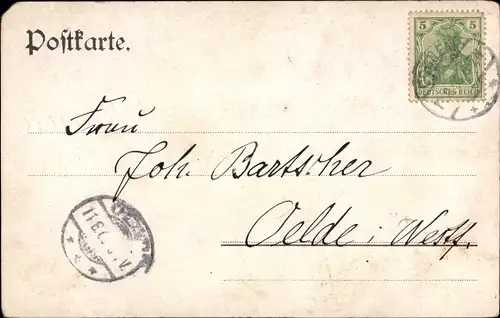 Postkarte.
5 5
DEUTSCHES REICH
Frau
Joh. Bartscher
Oelde i. Westf.